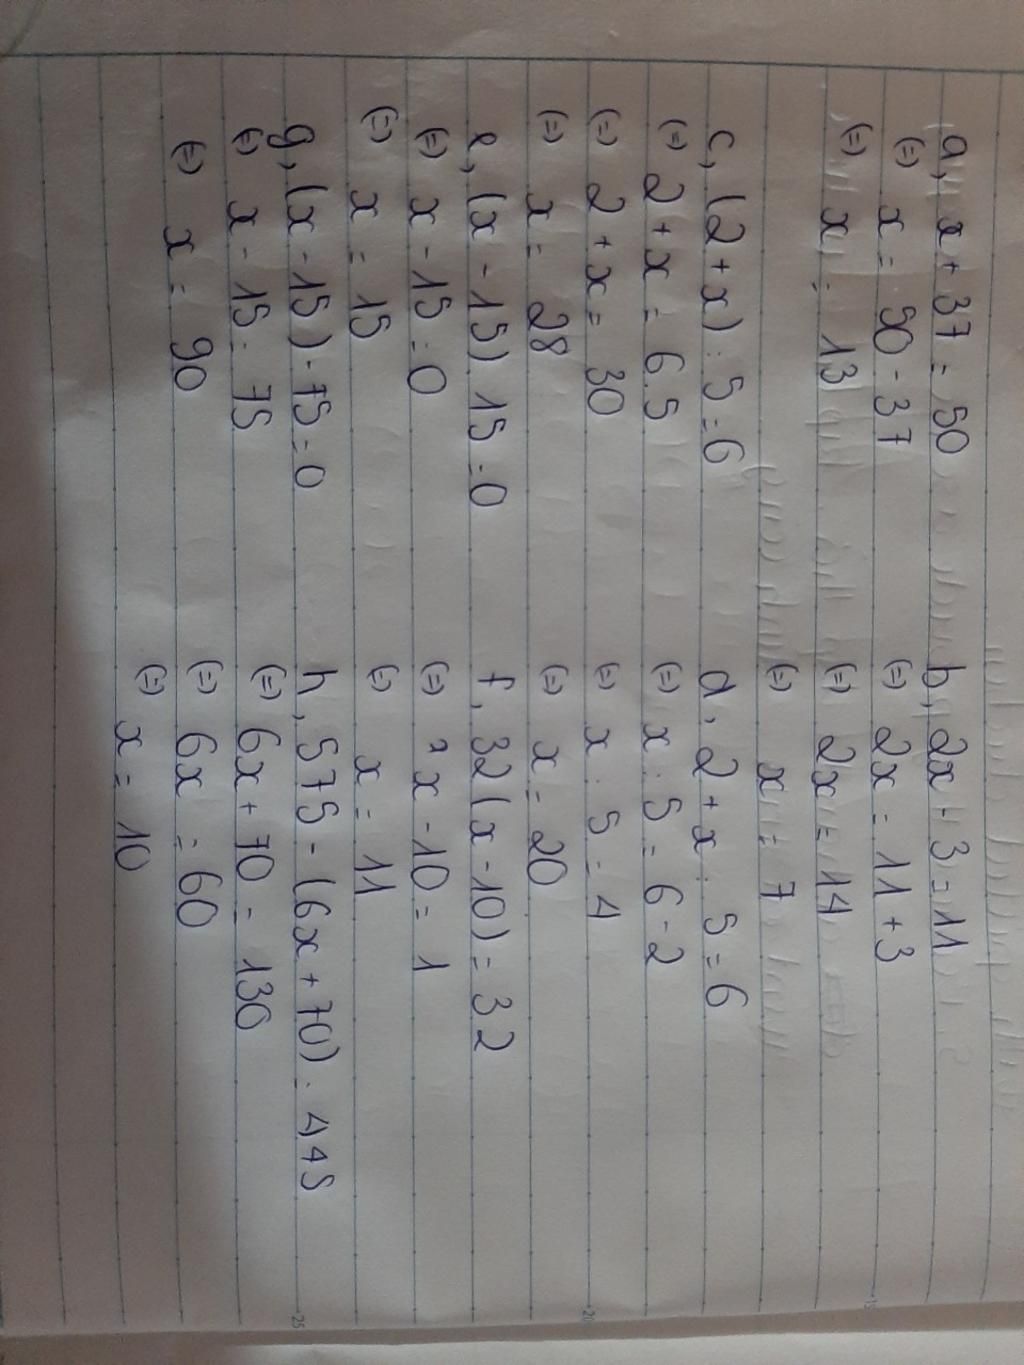 a, x + 37 = 50
(=) x = 50 - 37
(=) x = 13
b, 2x - 3 = 11
(=) 2x = 11 + 3
(=) 2x = 14
(=) x = 7
c, (2 + x) : 5 = 6
(=) 2 + x = 6.5
(=) 2 + x = 30
(=) x = 28
d, 2 + x : 5 = 6
(=) x : 5 = 6 - 2
(=) x : 5 = 4
(=) x = 20
e, (x - 15) . 15 = 0
(=) x - 15 = 0
(=) x = 15
f, 32 (x - 10) = 32
(=) x - 10 = 1
(=) x = 11
g, (x - 15) - 75 = 0
(=) x - 15 = 75
(=) x = 90
h, 575 - (6x + 70) = 445
(=) 6x + 70 = 130
(=) 6x = 60
(=) x = 10
15
20
25